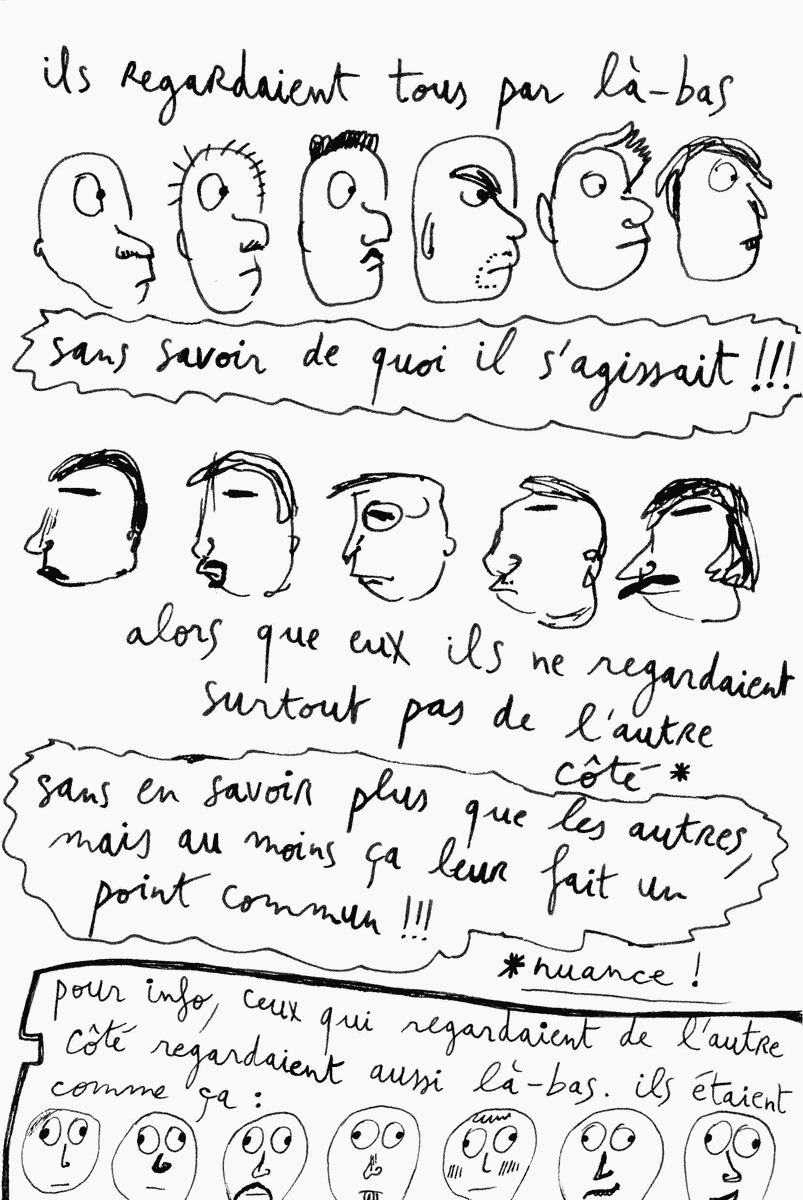 ils regardaient tous par là-bas
sans savoir de quoi il s'agissait !!!
alors que eux ils ne regardaient
surtout pas de l'autre
côté *
sans en savoir plus que les autres,
mais au moins ça leur fait un
point commun !!!
*nuance !
pour info, ceux qui regardaient de l'autre
côté regardaient aussi là-bas. ils étaient
comme ça :